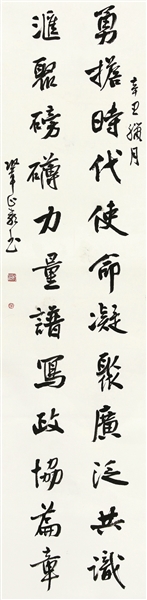 勇擔時代使命凝聚廣泛共識
辛丑臘月
匯聚磅礴力量譜寫政協篇章